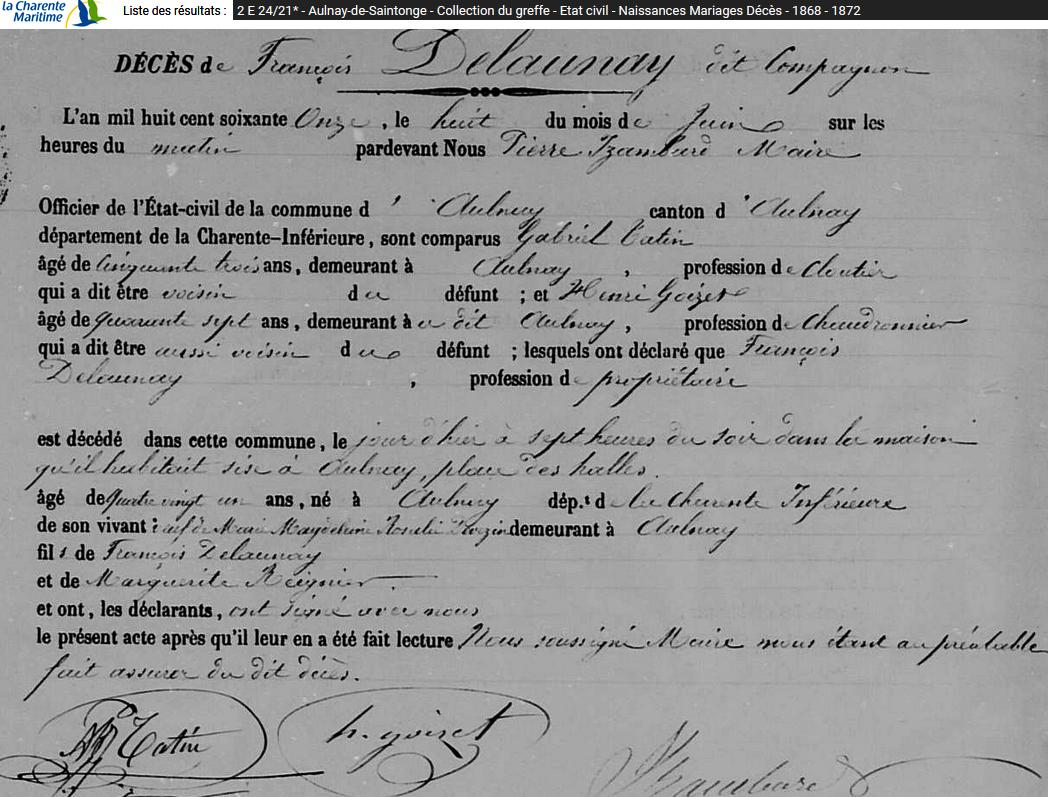 la Charente
Maritime
Liste des résultats : 2 E 24/21* - Aulnay-de-Saintonge - Collection du greffe - Etat civil - Naissances Mariages Décès - 1868 - 1872
DÉCÈS de François Delaunay dit Compagnon
L'an mil huit cent soixante Onze, le huit du mois de Juin sur les
heures du matin pardevant Nous Pierre Izambard Maire
Officier de l'État-civil de la commune d'Aulnay canton d'Aulnay
département de la Charente-Inférieure, sont comparus Gabriel Tatin
âgé de Cinquante trois ans, demeurant à Aulnay, profession de Cloutier
qui a dit être voisin du défunt ; et Henri Goizet
âgé de quarante sept ans, demeurant à dit Aulnay, profession de Chaudronnier
qui a dit être aussi voisin du défunt ; lesquels ont déclaré que François
Delaunay, profession de propriétaire
est décédé dans cette commune, le jour d'hier à sept heures du soir dans la maison
qu'il habitait sise à Aulnay, place des halles.
âgé de quatre vingt un ans, né à Aulnay dép.t de la Charente Inférieure
de son vivant : Marie Magdeleine Rosalie demeurant à Aulnay
fils de François Delaunay
et de Marguerite Reignier
et ont, les déclarants, ont signé avec nous
le présent acte après qu'il leur en a été fait lecture Nous soussigné Maire nous étant au préalable
fait assurer du dit décès.
Tatin h. goizet Izambard